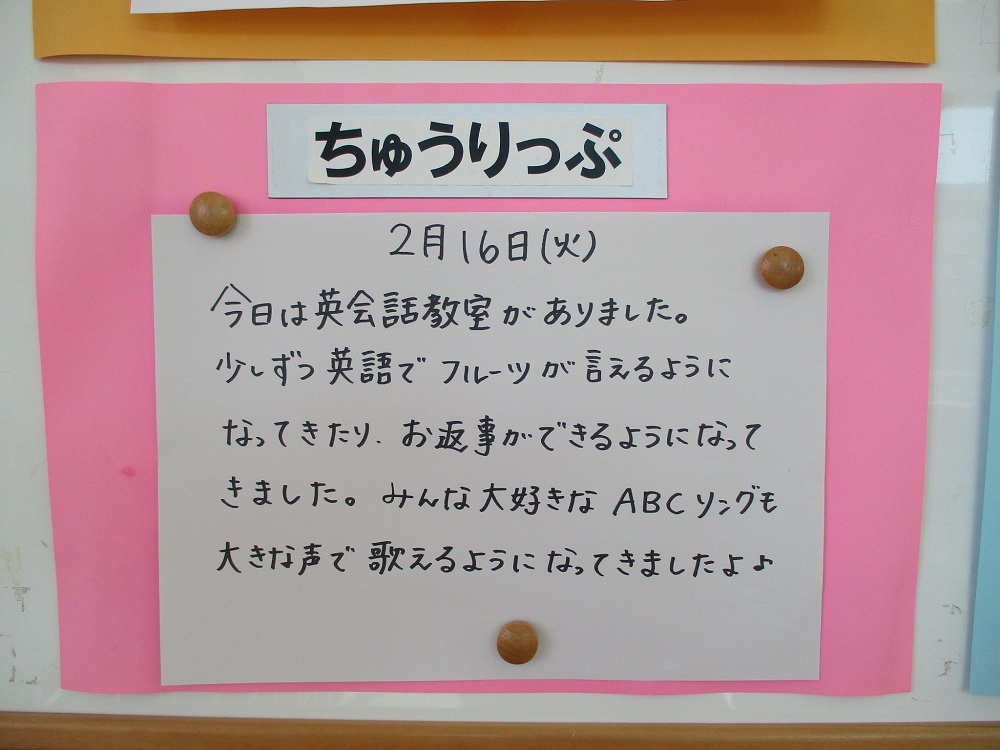 ちゅうりっぷ
2月16日(火)
今日は英会話教室がありました。
少しずつ英語でフルーツが言えるように
なってきたり、お返事ができるようになって
きました。みんな大好きなABCソングも
大きな声で歌えるようになってきましたよ♪